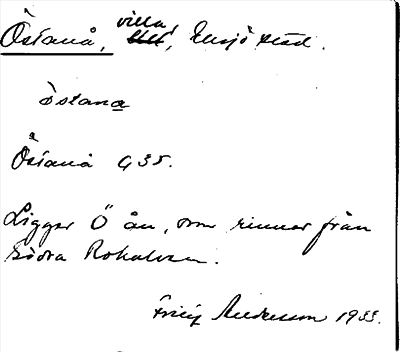 Östanå, villa, Eksjö stad.
östana
Östanå G35.
Ligger Ö ån, som rinner från
södra
Andersson 1935.